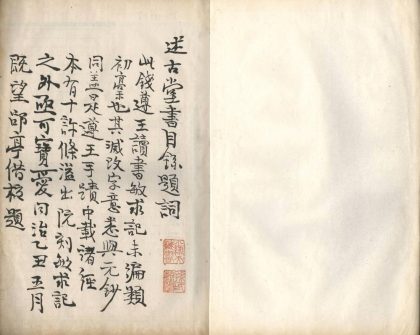 述古堂書目錄題詞
此錢遵王讀書敏求記未編類
初稾也其減改字意悉與元鈔
同蓋是遵王手蹟中載諸經
本有十許條溢出阮刻敏求記
之外亟可寶愛同治乙丑五月
既望郘亭借校題